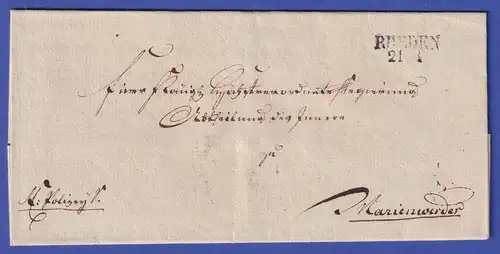 REHDEN
21 1
Einer Königl. Hochverordneten Regierung
Abtheilung des Innern
zu
Marienwerder
H: Polizey S.